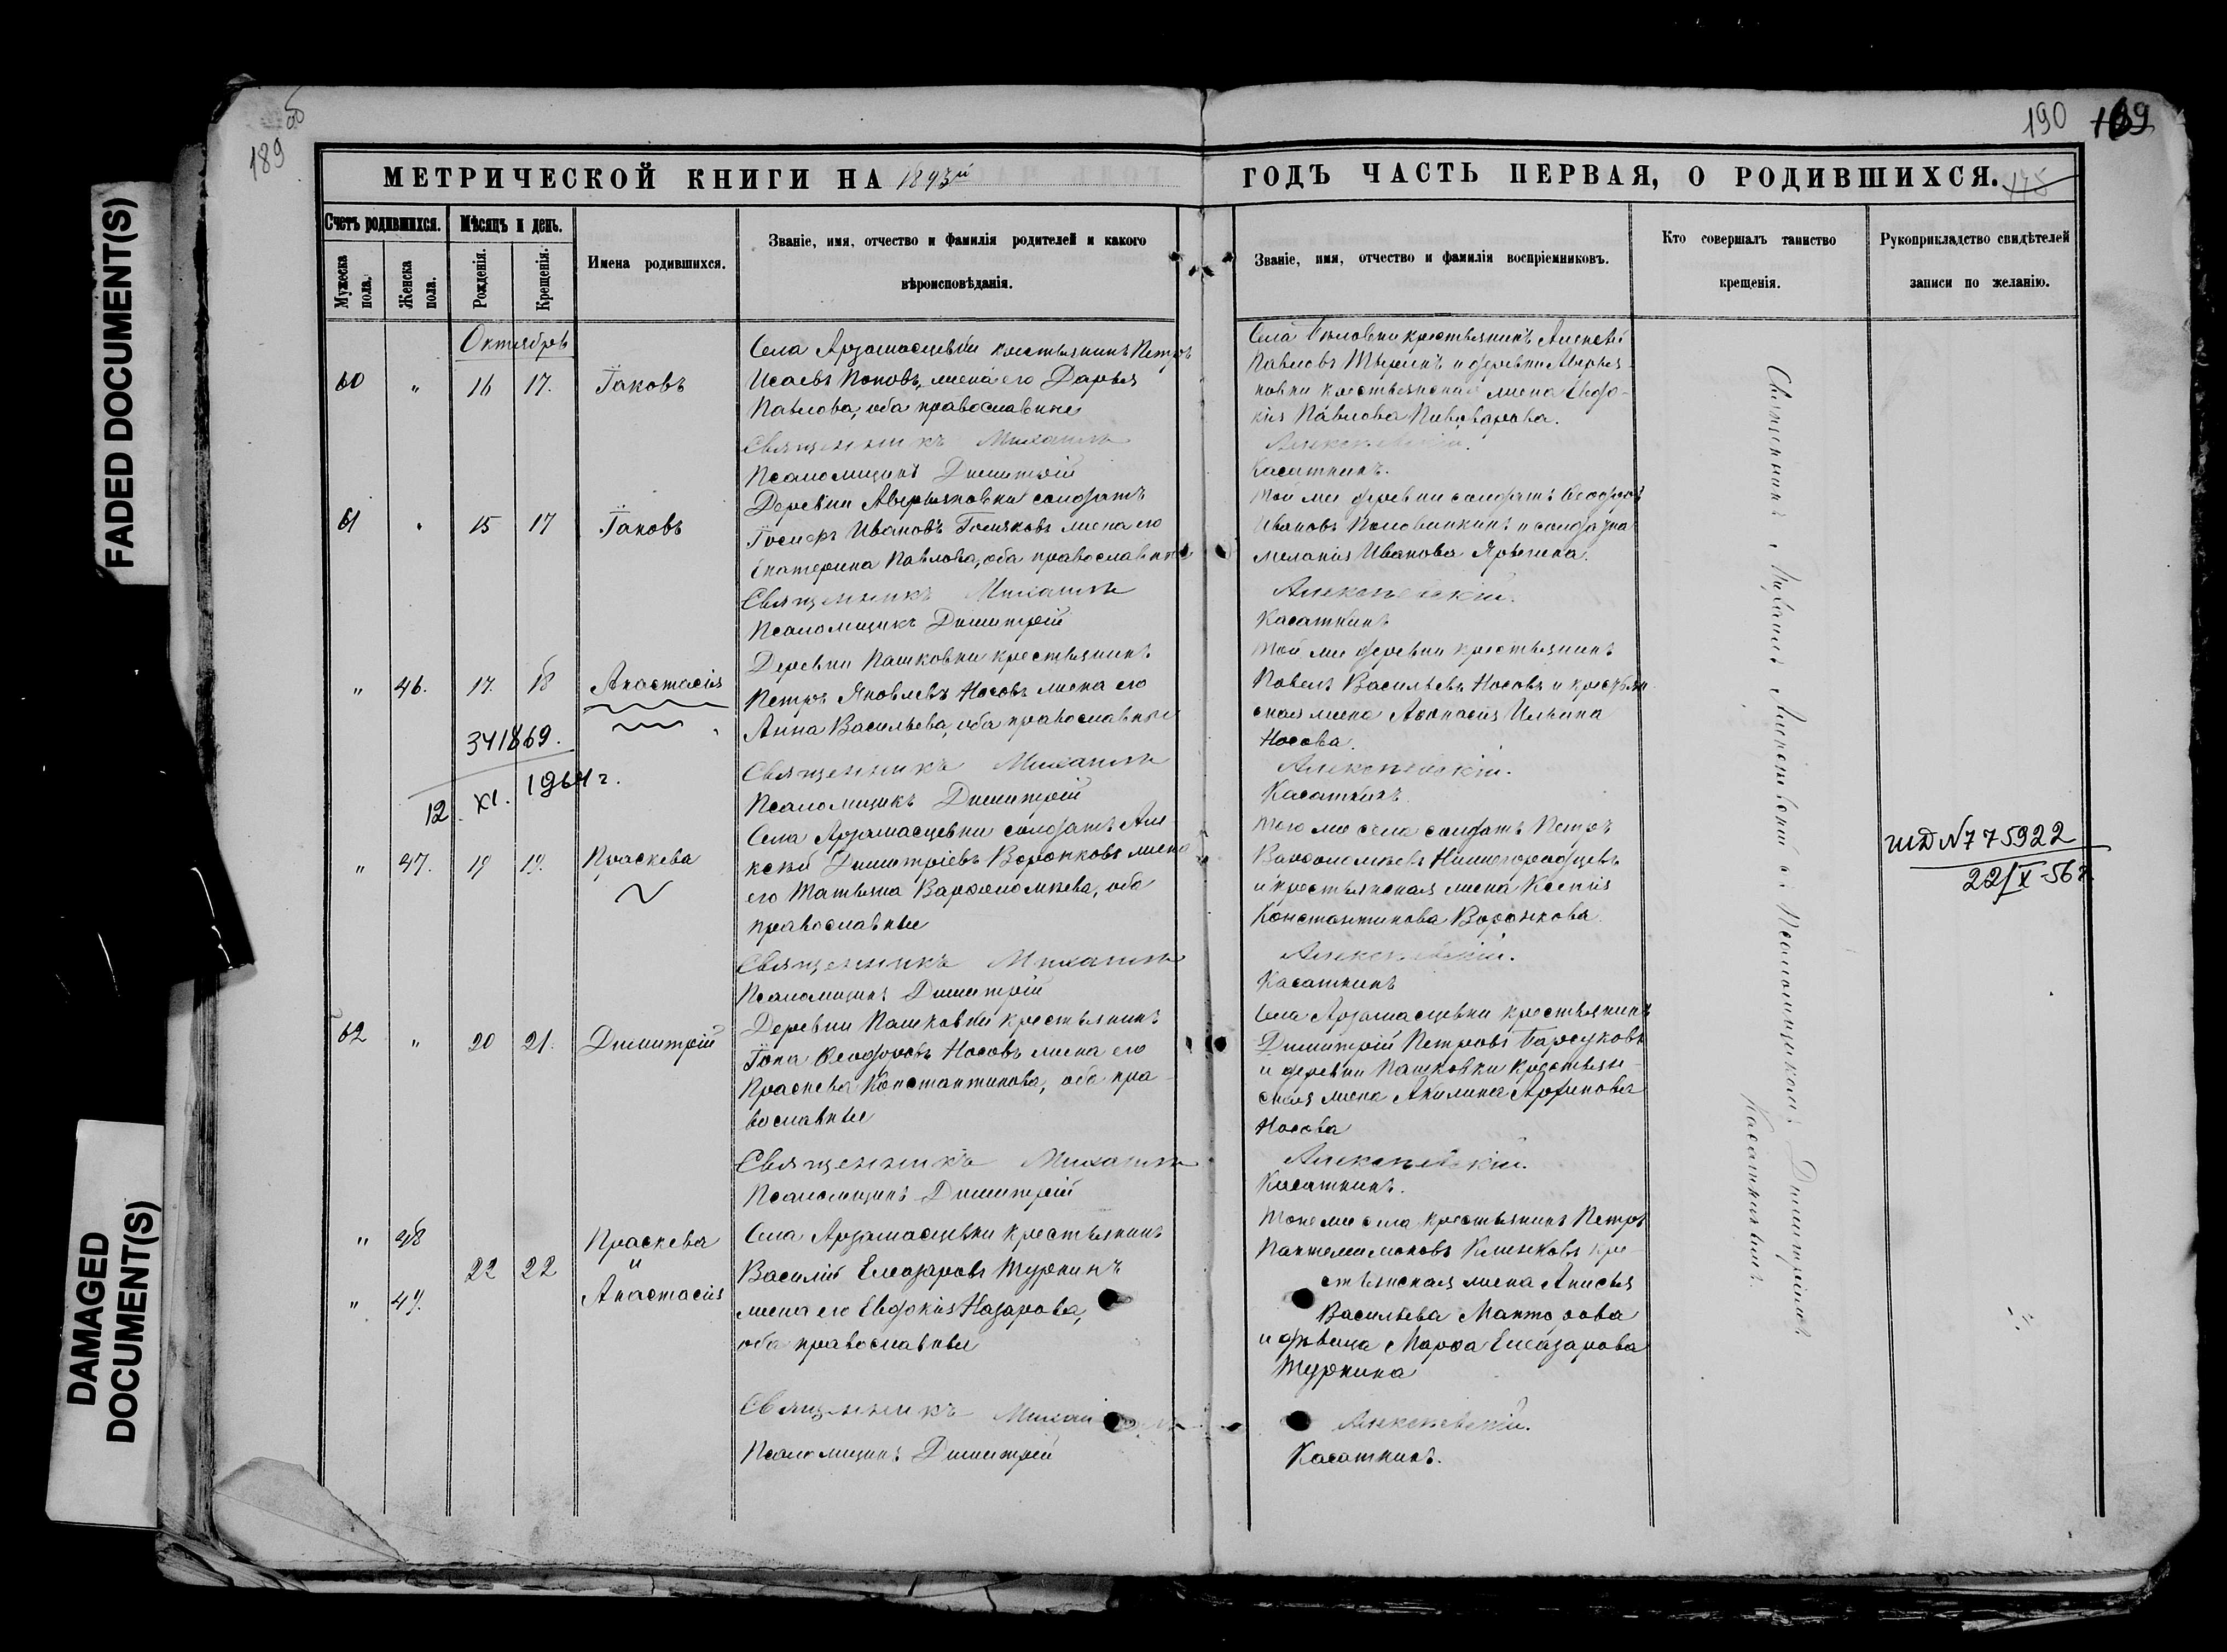 FADED DOCUMENT(S)
DAMAGED DOCUMENT(S)
189 об
190 169
МЕТРИЧЕСКОЙ КНИГИ НА 1893й ГОДЪ ЧАСТЬ ПЕРВАЯ, О РОДИВШИХСЯ. 175
Счетъ родившихся.
Мужеска пола.
Женска пола.
Мѣсяцъ и день.
Рожденія.
Крещенія.
Имена родившихся.
Званіе, имя, отчество и фамилія родителей и какого
вѣроисповѣданія.
Званіе, имя, отчество и фамилія воспріемниковъ.
Кто совершалъ таинство
крещенія.
Рукоприкладство свидѣтелей
записи по желанію.
Октябрь
60 " 16 17. Іаковъ
Села Арзамасцевки крестьянинъ Петръ
Исаевъ Поповъ, жена его Дарья
Павлова, оба православные
Священникъ Михаилъ
Псаломщикъ Димитрій
Села крестьянинъ Алексѣй
Павловъ и деревни Аверья-
новки крестьянская жена Евдо-
кія Павлова Пивоварова.
Алексѣевскій.
Касаткинъ.
61 " 15 17 Іаковъ
Деревни Аверьяновки солдатъ
Іосифъ Ивановъ жена его
Екатерина Павлова, оба православные
Священникъ Михаилъ
Псаломщикъ Димитрій
Той же деревни солдатъ Ѳеодоръ
Ивановъ Половинкинъ и
Меланія Иванова
Алексѣевскій.
Касаткинъ
" 46. 17. 18 Анастасія
Деревни Пашковки крестьянинъ
Петръ Яковлевъ Носовъ жена его
Анна Васильева, оба православные
Священникъ Михаилъ
Псаломщикъ Димитрій
341869.
12. XI. 1964 г.
Той же деревни крестьянинъ
Павелъ Васильевъ Носовъ и крестьян-
ская жена Аѳанасія Ильина
Носова.
Алексѣевскій.
Касаткинъ
" 47. 19 19. Праскева
Села Арзамасцевки солдатъ Але-
ксѣй Димитріевъ Воронковъ жена
его Татьяна Варѳоломѣева, оба
православные
Священникъ Михаилъ
Псаломщикъ Димитрій
Того же села солдатъ Петръ
Варѳоломѣевъ Нижегородцевъ
и крестьянская жена Ксенія
Константинова Воронкова.
Алексѣевскій.
Касаткинъ
ШД №775922
22/X-56 г.
62 " 20 21. Димитрій
Деревни Пашковки крестьянинъ
Іона Ѳеодоровъ Носовъ жена его
Праскева Константинова, оба пра-
вославные
Священникъ Михаилъ
Псаломщикъ Димитрій
Села Арзамасцевки крестьянинъ
Димитрій Петровъ Барсуковъ
и деревни Пашковки крестьян-
ская жена Акилина
Носова
Алексѣевскій.
Касаткинъ.
" 48 Праскева
и
22 22
" 49. Анастасія
Села Арзамасцевки крестьянинъ
Василій Елеазаровъ Туркинъ
жена его Евдокія Назарова,
оба православные
Священникъ Михаилъ
Псаломщикъ Димитрій
Того же села крестьянинъ Петръ
Пантелимоновъ Клинковъ кре-
стьянская жена Анисья
Васильева
и дѣвица Марѳа Елеазарова
Туркина
Алексѣевскій.
Касаткинъ.
Священникъ Михаилъ Алексѣевскій съ Псаломщикомъ Димитріемъ
Касаткинымъ.